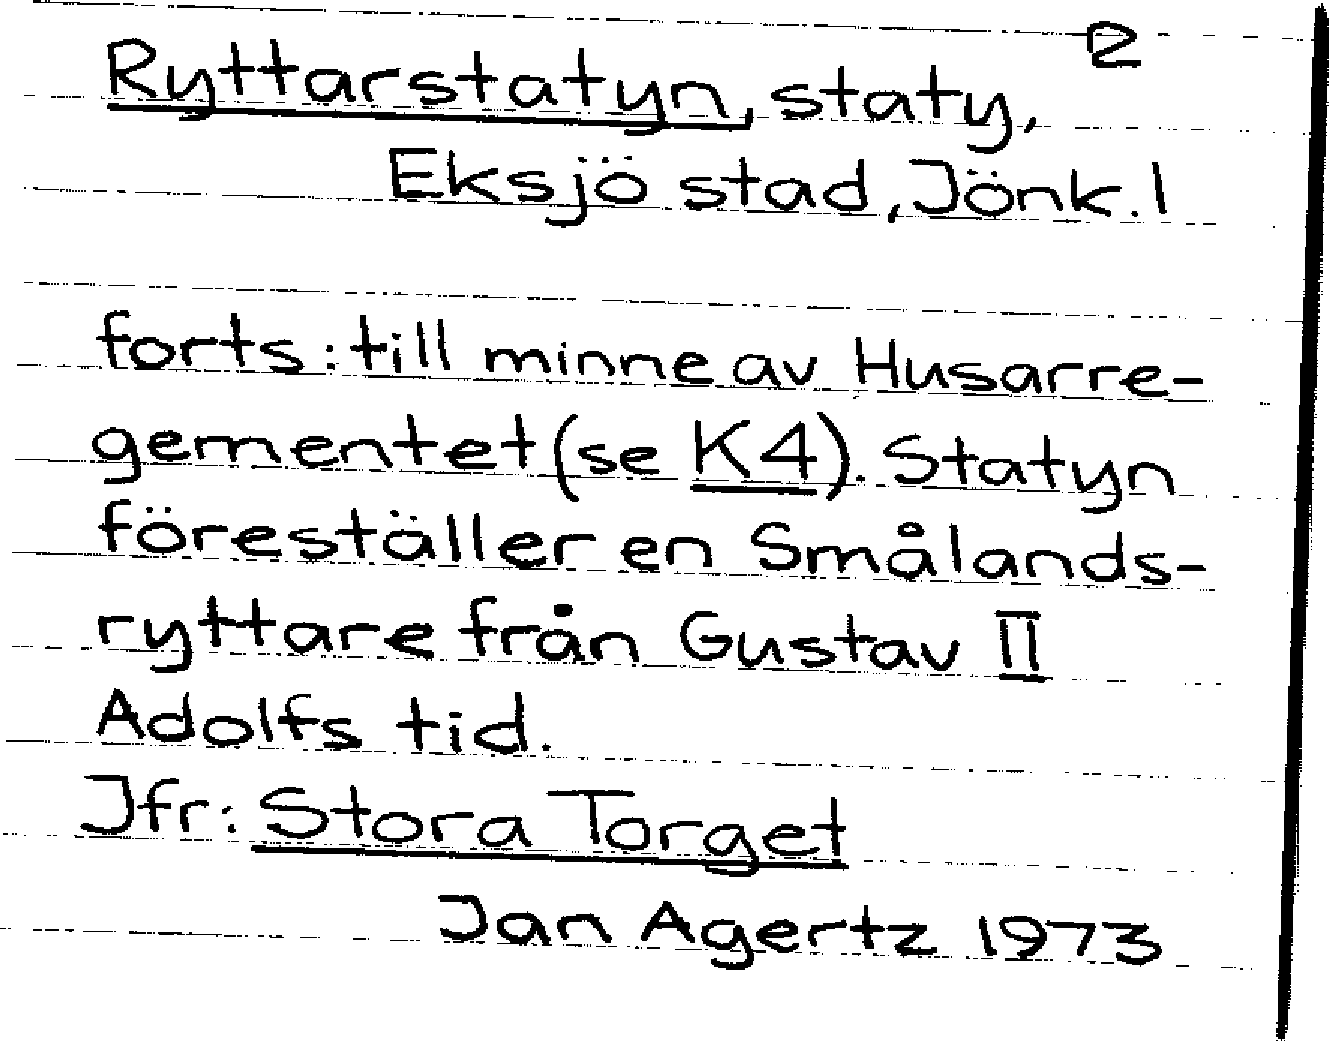 2
Ryttarstatyn, staty,
Eksjö stad, Jönk. l
forts: till minne av Husarre-
gementet (se K4). Statyn
föreställer en Smålands-
ryttare från Gustav II
Adolfs tid.
Jfr: Stora Torget
Jan Agertz 1973